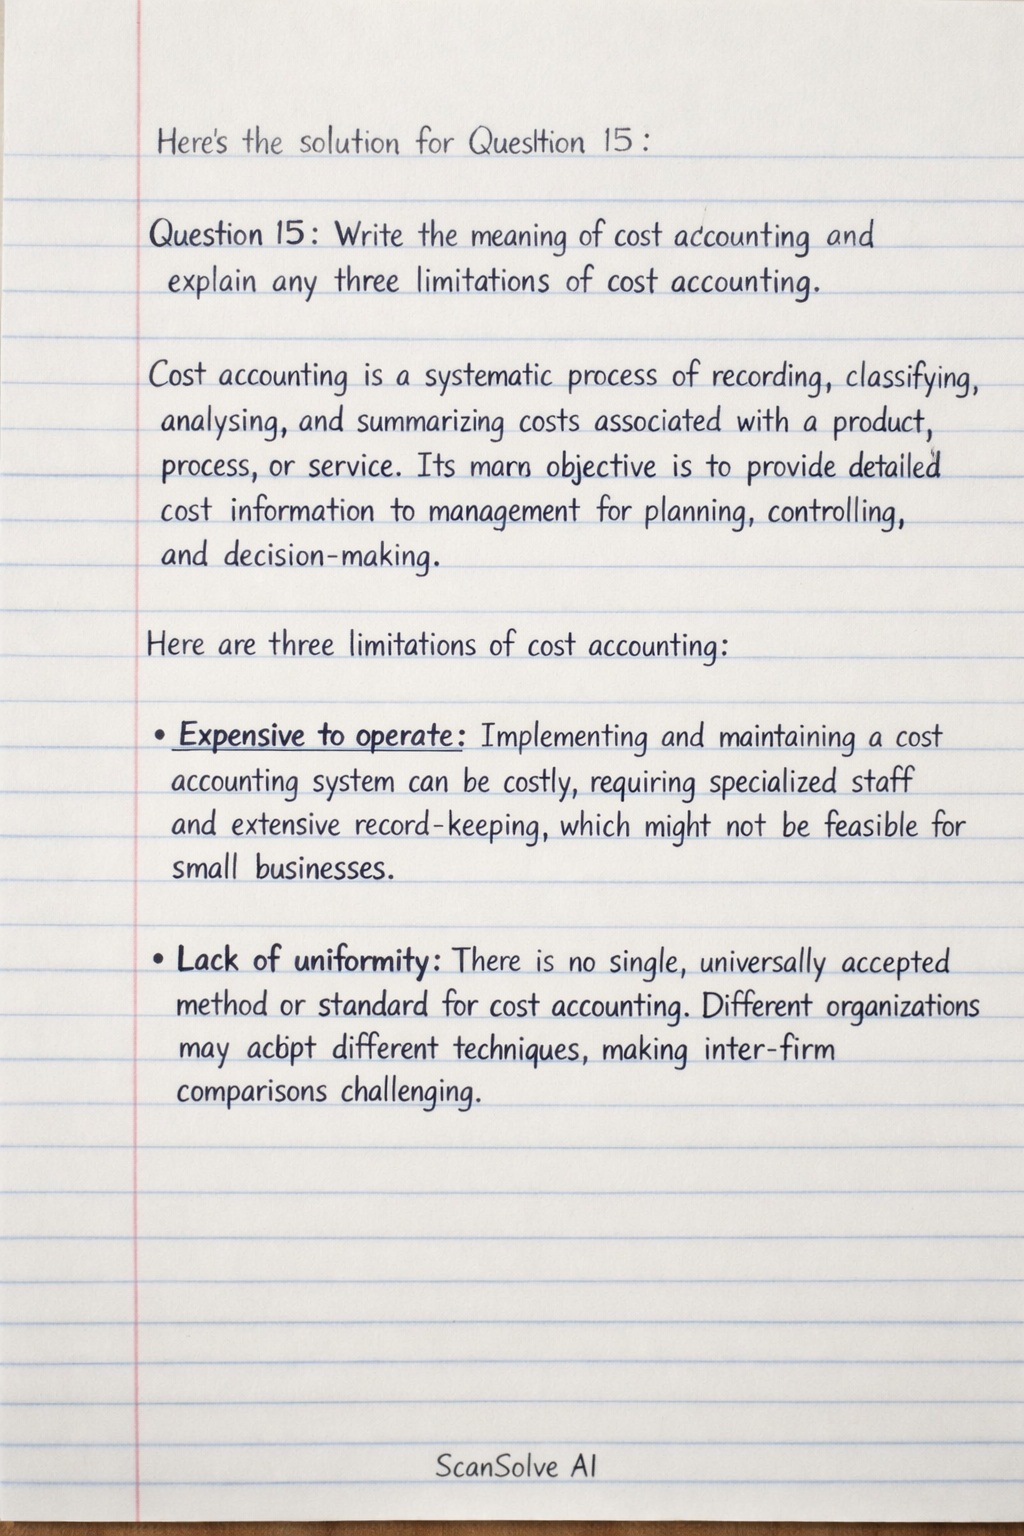 Here's the solution for Quesltion 15:
Question 15: Write the meaning of cost accounting and
explain any three limitations of cost accounting.
Cost accounting is a systematic process of recording, classifying,
analysing, and summarizing costs associated with a product,
process, or service. Its marn objective is to provide detailed
cost information to management for planning, controlling,
and decision-making.
Here are three limitations of cost accounting:
• Expensive to operate: Implementing and maintaining a cost
accounting system can be costly, requiring specialized staff
and extensive record-keeping, which might not be feasible for
small businesses.
• Lack of uniformity: There is no single, universally accepted
method or standard for cost accounting. Different organizations
may different techniques, making inter-firm
comparisons challenging.
ScanSolve AI